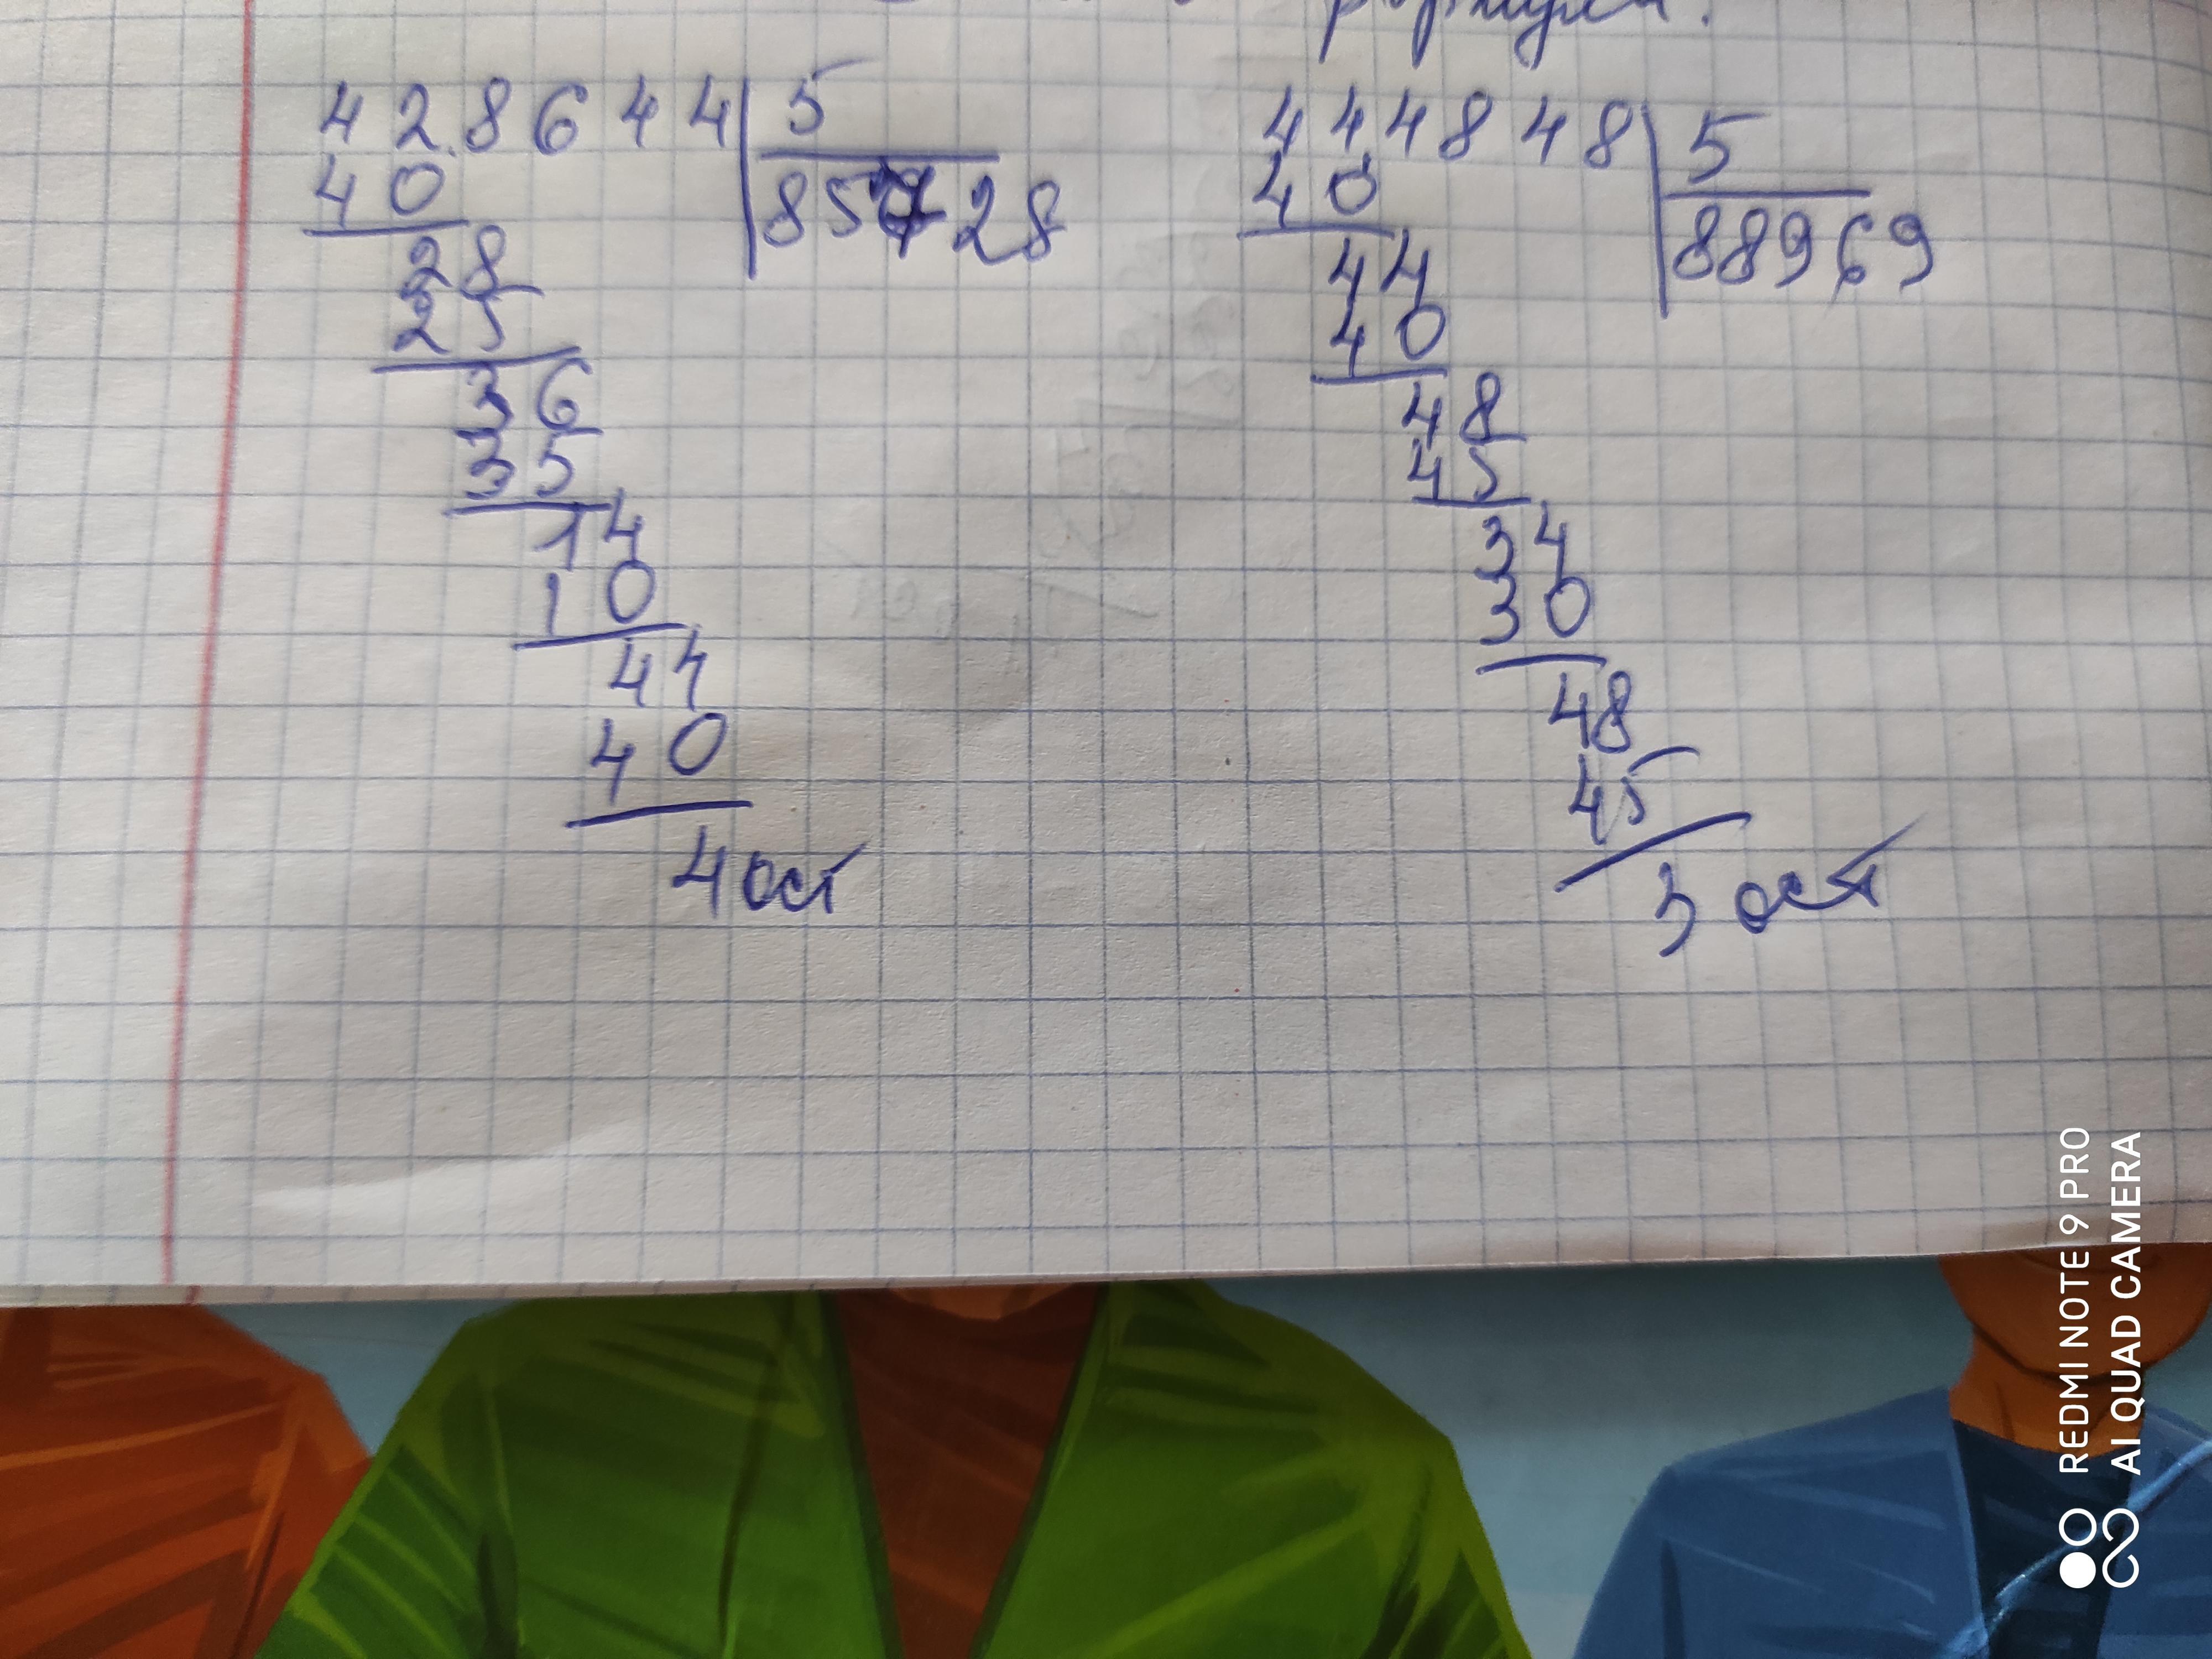 формула.
428644 5
40 85728
28
25
36
35
14
10
44
40
4 ост
444848 5
40 88969
44
40
48
45
34
30
48
45
3 ост
REDMI NOTE 9 PRO
AI QUAD CAMERA